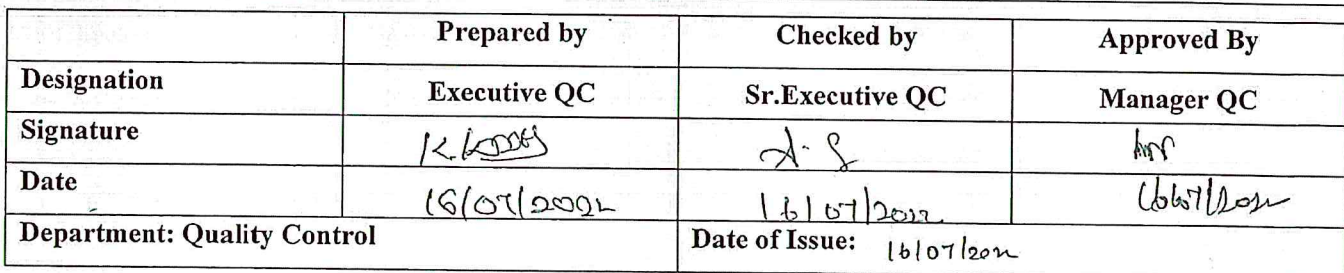 Prepared by Checked by Approved By
Designation Executive QC Sr.Executive QC Manager QC
Signature A. S
Date 16/07/2022 16/07/2022 16/07/2022
Department: Quality Control Date of Issue: 16/07/2022